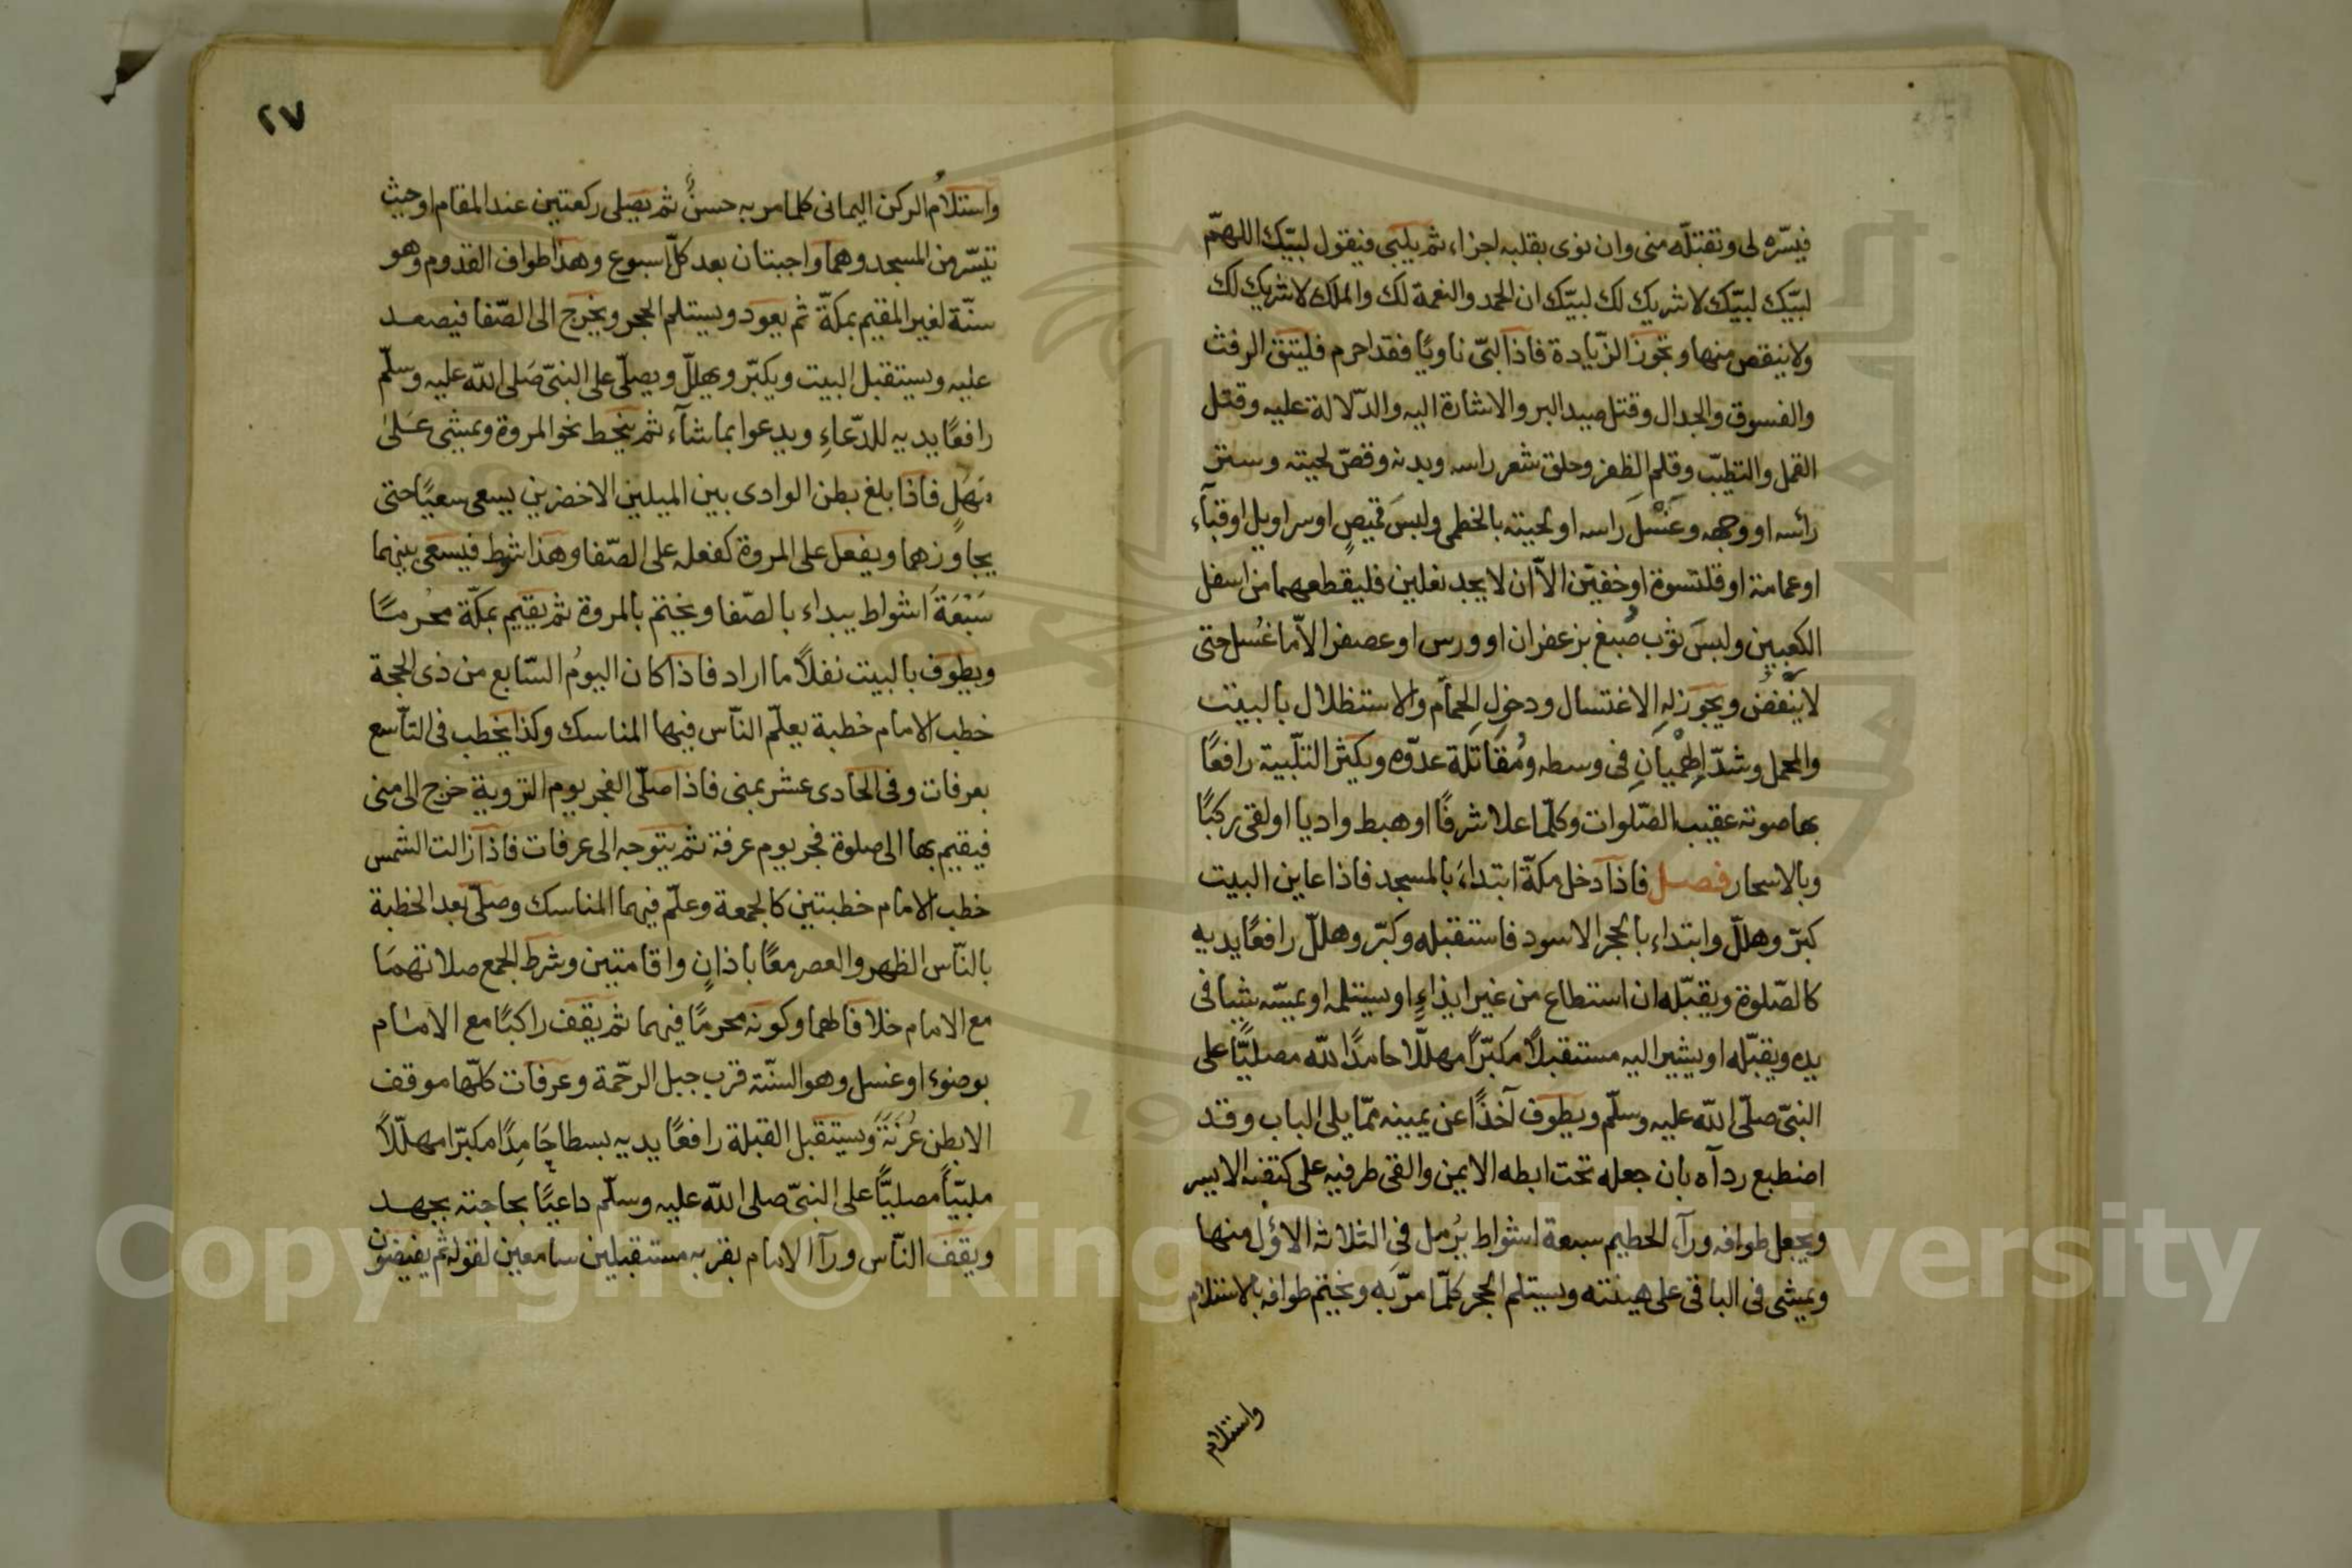 فيسّره لى وتقبّله منى وان نوى بقلبه اجزاء ثم يلبى فيقول لبيّك اللهمّ
لبيّك لبيّك لا شريك لك لبيّك ان الحمد والنعمة لك والملك لا شريك لك
ولا ينقص منها وتجوز الزّيادة فاذا لبّى ناويًا فقد احرم فليتق الرفث
والفسوق والجدال وقتل صيد البر والاشارة اليه والدّلالة عليه وقتل
القمل والتطيّب وقلم الظفر وحلق شعر راسه وبدنه وقصّ لحيته وستر
رأسه او وجهه وغَسْلَ راسه او لحيته بالخطمى ولبسَ قميصٍ او سراويل او قبآء
او عمامة او قلنسوة او خفيّن الاّ ان لا يجد نعلين فليقطعهما من اسفل
الكعبين ولبسَ ثوب صُبغ بزعفران او ورس او عصفر الاّ ما غُسل حتى
لا ينفض ويجوز له الاغتسال ودخول الحمام والاستظلال بالبيت
والمحمل وشدّ الهِمْيانِ فى وسطه ومُقَاتَلة عدوّه ويكثر التّلبية رافعًا
بها صوته عقيب الصّلوات وكلّما علا شرفًا او هبط واديا او لقى ركبًا
وبالاسحار فصل فاذا دخل مكّة ابتداءَ بالمسجد فاذا عاين البيت
كبّر وهللّ وابتداء بالحجر الاسود فاستقبله وكبّر وهللّ رافعًا يديه
كالصّلوة ويقبّله ان استطاع من غير ايذاءٍ او يستلمه او يمسّه شيًا فى
يده ويقبّله او يشير اليه مستقبلاً مكبّرًا مهلّلا حامدًا للّه مصليًّا على
النبىّ صلّى اللّه عليه وسلّم ويطوف آخذًا عن يمينه ممّا يلى الباب وقد
اضطبع ردآه بان جعله تحت ابطه الايمن والقى طرفيه على كتفه الايسر
ويجعل طوافه ورآء الحطيم سبعة اشواط يرُمل فى الثلاثه الاوُل منها
ويمشى فى الباقى على هينته ويستلم الحجر كلّما مرّ به ويختم طوافه بالاستلام
واستلام
٢٧
واستلامُ الركن اليمانى كلما مر به حسنٌ ثم يصلى ركعتين عند المقام او حيث
تيسّر من المسجد وهما واجبتان بعد كلّ اسبوع وهذا طواف القدوم وهو
سنّة لغير المقيم بمكّة ثم يعود ويستلم الحجر ويخرج الى الصّفا فيصعد
عليه ويستقبل البيت ويكبّر ويهللّ ويصلّى على النبىّ صَلى اللّه عليه وسلّم
رافعًا يديه للدّعاءِ ويدعوا بما شآء ثم ينحط نحو المروة ويمشى عَلىَ
مَهَلٍ فاذا بلغ بطن الوادى بين الميلين الاخضرين يسعى سعيًا حتى
يجاوزهما ويفعل على المروة كفعله على الصّفا وهذا شوط فيسعى بينهما
سَبْعَةَ اشواط يبداء بالصّفا ويختم بالمروة ثم يقيم بمكّة محُرمًا
ويطوف بالبيت نفلاً ما اراد فاذا كان اليومُ السّابع من ذى الحجة
خطب الامام خطبة يعلّم النّاس فيها المناسك وكذا يخطب فى التّاسع
بعرفات وفى الحادى عشر بمنى فاذا صلّى الفجر يوم التروية خرج الى منى
فيقيم بها الى صلوة فجر يوم عرفة ثم يتوجه الى عرفات فاذا زالت الشمس
خطب الامام خطبتين كالجمعة وعلّم فيهما المناسك وصلّى بعد الخطبة
بالنّاس الظهر والعصر معًا باذانٍ واقامتين وشرط الجمع صلاتهمَا
مع الامام خلافا لهما وكونه محرمًا فيهما ثم يقف راكبًا مع الامام
بوضوء او غسل وهو السنّة قرب جبل الرحّمة وعرفات كلّها موقف
الا بطن عُرَنَةَ ويستقبل القبلة رافعًا يديه بسطا حَامِدًا مكبّرا مهلّلاً
ملبّيًا مصليًّا على النبىّ صلى اللّه عليه وسلّم داعيًا بحاجته بجهد
ويقف النّاس ورآ الامام بقربه مستقبلين سامعين لقوله ثم يفيضون
Copyright © King Saud University